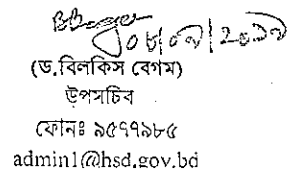 ০৮/০৭/২০১৭
(ড.বিলকিস বেগম)
উপসচিব
ফোনঃ ৯৫৭৭৯৮৫
admin1@hsd.gov.bd